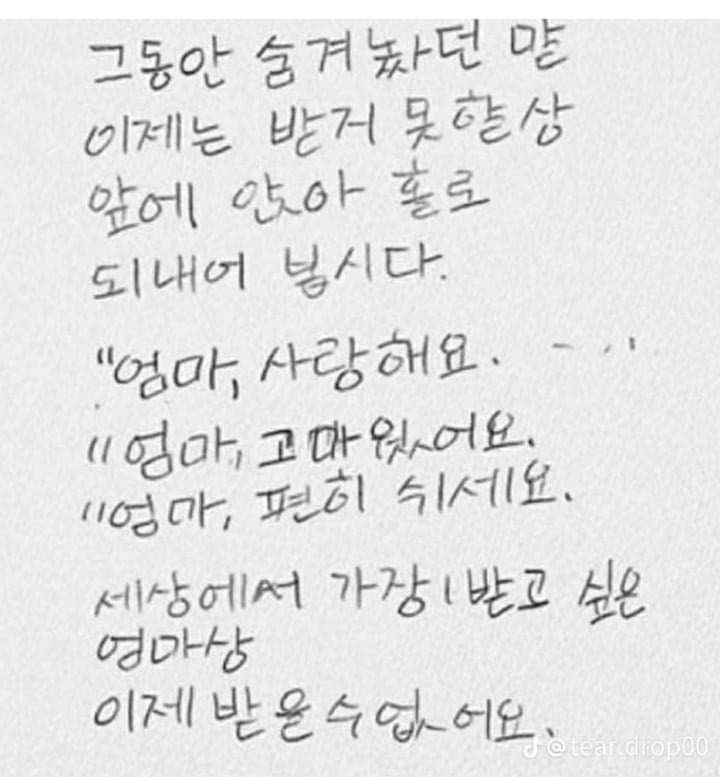 그동안 숨겨놨던 말
이제는 받거 못할 상
앞에 앉아 홀로
되내어 봅시다.
"엄마, 사랑해요.
"엄마, 고마웠어요.
"엄마, 편히 쉬세요.
세상에서 가장 받고 싶은
엄마상
이제 받을 수 없어요.
@tear.drop00